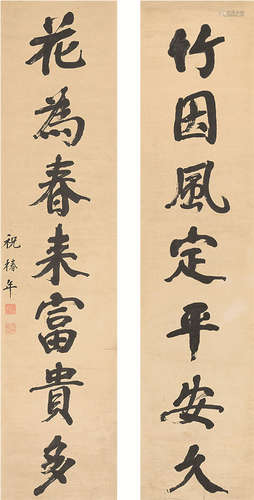 竹因風定平安久
花為春来富貴多
祝椿年